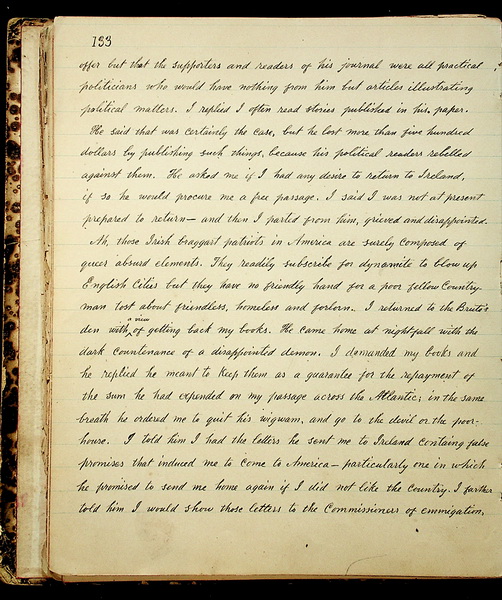 133
offer but that the supporters and readers of his journal were all practical
politicians who would have nothing from him but articles illustrating
political matters. I replied I often read stories published in his paper.
He said that was certainly the case, but he lost more than five hundred
dollars by publishing such things, because his political readers rebelled
against them. He asked me if I had any desire to return to Ireland,
if so he would procure me a free passage. I said I was not at present
prepared to return — and then I parted from him, grieved and disappointed.
Ah, those Irish braggart patriots in America are surely composed of
queer absurd elements. They readily subscribe for dynamite to blow up
English Cities but they have no friendly hand for a poor fellow Country-
man tost about friendless, homeless and forlorn. I returned to the Brute's
den with a view of getting back my books. He came home at nightfall with the
dark countenance of a disappointed demon. I demanded my books and
he replied he meant to keep them as a guarantee for the repayment of
the sum he had expended on my passage across the Atlantic; in the same
breath he ordered me to quit his wigwam, and go to the devil or the poor-
house. I told him I had the letters he sent me to Ireland containg false
promises that induced me to come to America — particularly one in which
he promised to send me home again if I did not like the Country. I farther
told him I would show those letters to the Commissioners of emmigation,